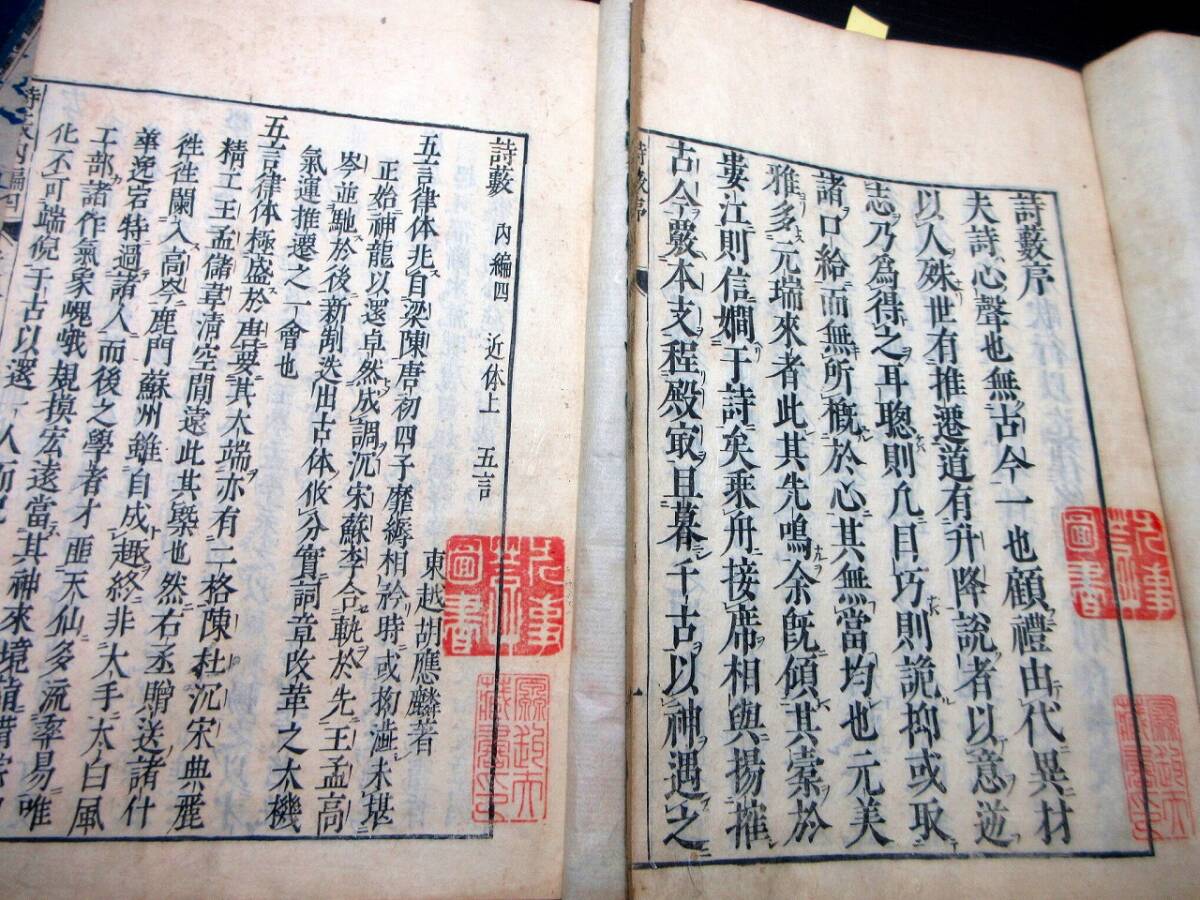 詩藪序
夫詩心聲也無古今一也顧禮由代異材
以人殊世有推遷道有升降說者以意逆
志乃爲得之耳聰則凢目巧則詭抑或取
諸口給而無所槪於心其無當均也元美
雅多元瑞來者此其先鳴余旣傾其橐於
婁江則信嫺于詩矣乗舟接席相與揚搉
古今覈本支程殿㝡旦暮千古以神遇之
詩藪序
一
圖書
詩藪 内編四 近体上 五言
東越胡應麟著
五言律体兆自梁陳唐初四子靡縟相矜時或拗澁未堪
正始神龍以還卓然成調沉宋蘇李合軌於先王孟高
岑並馳於後新制迭出古体攸分實詞章改革之大機
氣運推遷之一會也
五言律体極盛於唐要其大端亦有二格陳杜沉宋典麗
精工王孟儲韋清空閒遠此其槩也然右丞贈送諸什
徃徃闌入高岑鹿門蘇州雖自成趣終非大手太白風
華逸宕特過諸人而後之學者才匪天仙多流率易唯
工部諸作氣象嵬峨規摸宏遠當其神來境詣錯綜幻
化不可端倪千古以還一人而已
圖書